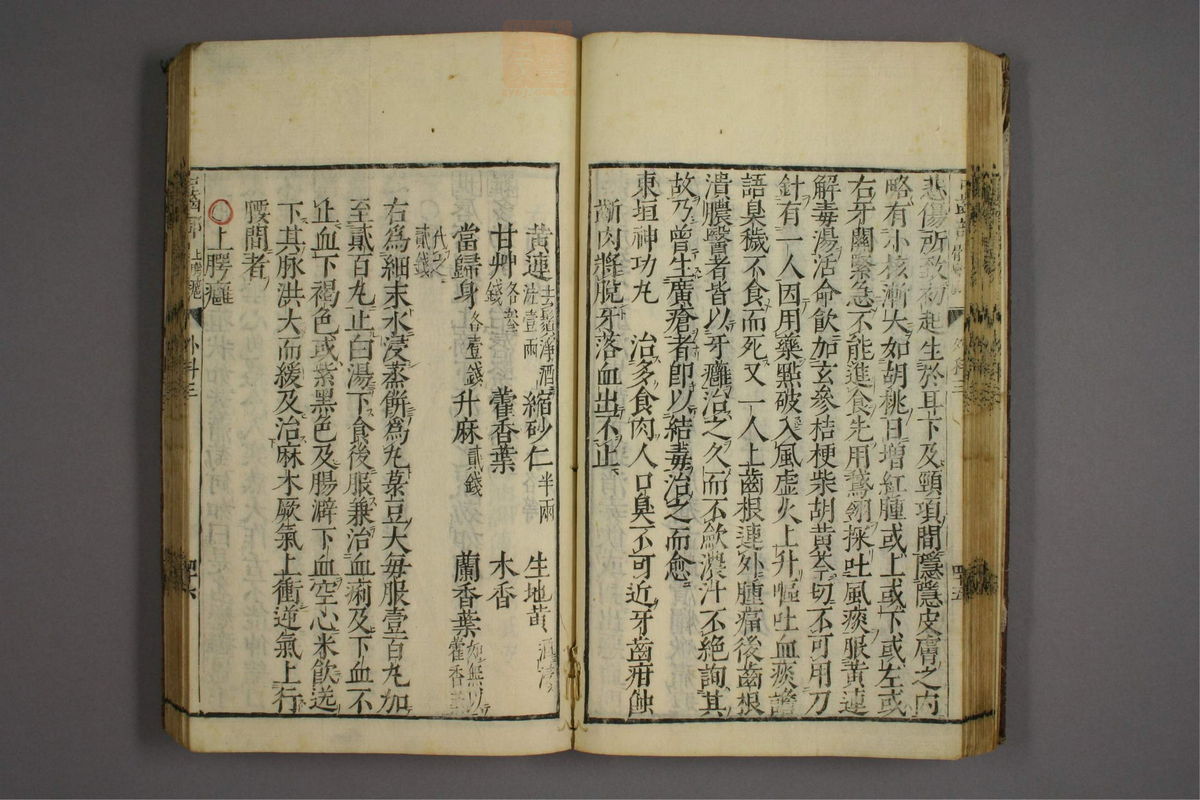 悲傷所致初起生於耳下及頸項間隱隱皮膚之内
略有小核漸大如胡桃日增紅腫或上或下或左或
右牙關緊急不能進食先用鵞翎探吐風痰服黃連
解毒湯活命飲加玄參桔梗柴胡黃芩切不可用刀
針有一人因用藥點破入風虛火上升嘔吐血痰譫
語臭穢不食而死又一人上齒根連外腫痛後齒根
潰膿醫者皆以牙癰治之久而不歛濃汁不絶詢其
故乃曾生廣瘡者即以結毒治之而愈
東垣神功丸 治多食肉人口臭不可近牙齒疳蝕
斷肉將脫牙落血出不止
黃連 去鬚淨酒 洗壹兩 縮砂仁 半兩 生地黃 酒浸
甘艸 各叄錢 藿香葉 木香
當歸身 各壹錢 升麻 貳錢 蘭香葉 如無以藿香葉
代之 貳錢
右爲細末水浸蒸餅爲丸菉豆大每服壹百丸加
至貳百丸止白湯下食後服兼治血痢及下血不
止血下褐色或紫黑色及腸澼下血空心米飲送
下其脉洪大而緩及治麻木厥氣上衝逆氣上行
腰間者
上腭癰
外科三
四十六